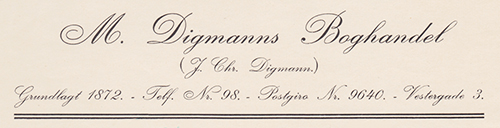 M. Digmanns Boghandel
(J. Chr. Digmann.)
Grundlagt 1872. - Telf. Nr. 98. - Postgiro Nr. 9640. - Vestergade 3.